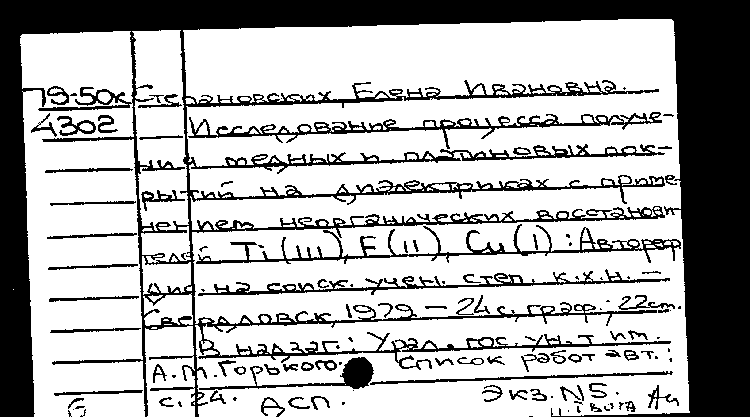 79-50к Степановских, Елена Ивановна.
4302 Исследование процесса получе-
ния медных и платиновых пок-
рытий на диэлектриках с приме-
нением неорганических восстанови-
телей Ti(III), F(II), Cu(I): Автореф.
дис. на соиск. учен. степ. к.х.н. —
Свердловск, 1979 — 24 с., граф.; 22 см.
В надзаг.: Урал. гос. ун-т им.
А.М.Горького. Список работ авт.:
с. 24. Дсп. Экз. N5.